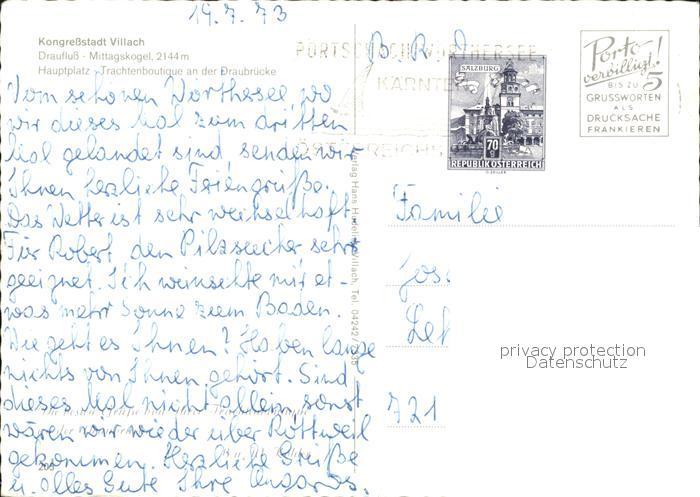 19.7.73
Kongreßstadt Villach
Draufluß - Mittagskogel, 2144 m
Hauptplatz - Trachtenboutique an der Draubrücke
Vom schönen Wörthersee wo
wir dieses Mal zum dritten
Mal gelandet sind, senden wir
Ihnen herzliche Feriengrüße.
Das Wetter ist sehr wechselhaft.
Für Robert den Pilzsucher sehr
geeignet. Ich wünschte mir et-
was mehr Sonne zum Baden.
Wie geht es Ihnen? Haben lange
nichts von Ihnen gehört. Sind
dieses Mal nicht allein, sonst
wären wir wieder über Rottweil
gekommen. Herzliche Grüße
u. alles Gute Ihre
Verlag Hans Villach, Tel. 04242/
B.R.D.
PÖRTSCHACH WÖRTHERSEE
KÄRNTEN
ÖSTERREICHS
SALZBURG
70
g
REPUBLIK ÖSTERREICH
Porto
verbilligt!
BIS ZU 5
GRUSSWORTEN
ALS
DRUCKSACHE
FRANKIEREN
Familie
Jos
721
privacy protection
Datenschutz